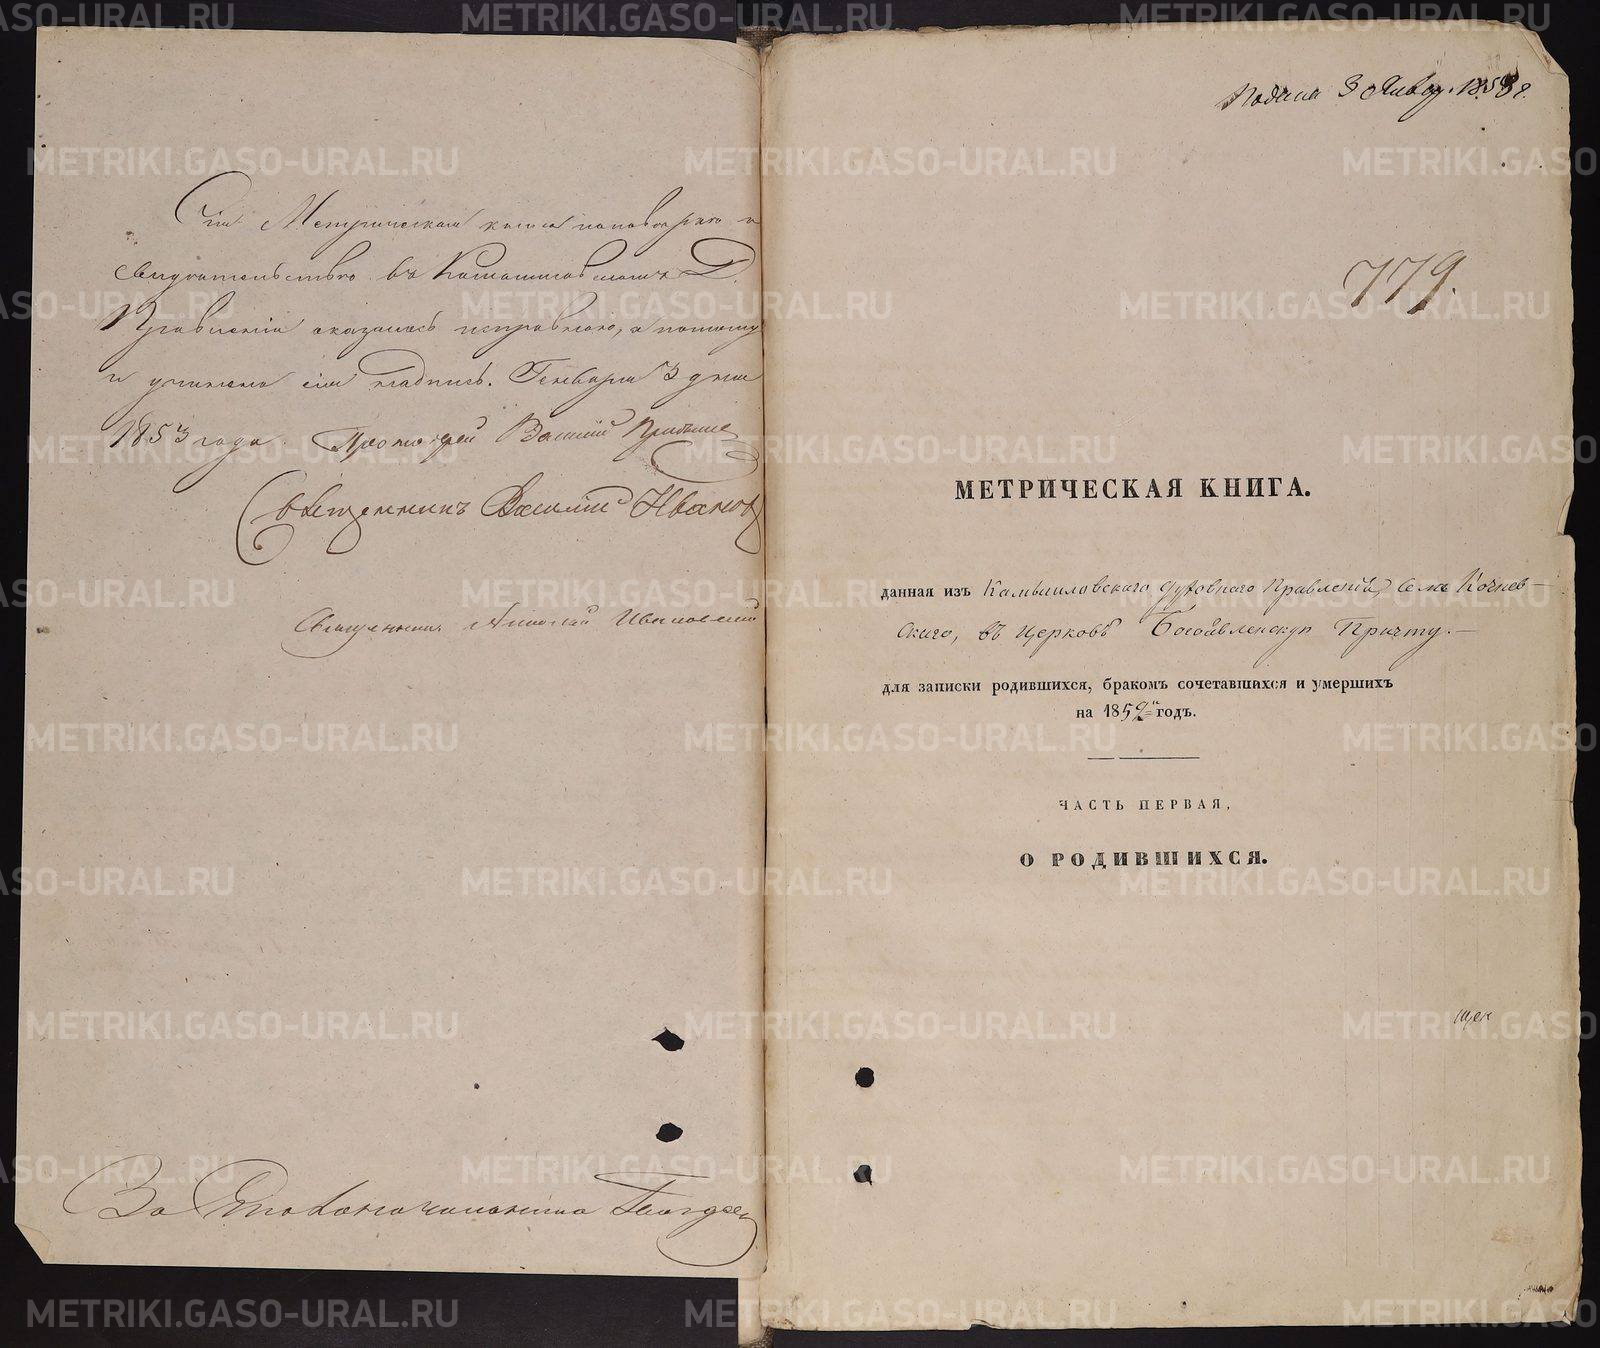 Сія Метрическая книга по поверкѣ и
свидѣтельству въ Камышловскомъ Д.
Правленіи оказалась исправною, а потому
и учинена сія надпись. Генваря 3 дня
1853 года. Протоіерей Василій
Священникъ Василій Ивановъ
Священникъ Николай
За Столоначальника
Подана 3 Январ. 1853 г.
779.
МЕТРИЧЕСКАЯ КНИГА.
данная изъ Камышловскаго Духовнаго Правленія, Села Кочнев-
скаго, въ Церковь Богоявленскую Причту.—
для записки родившихся, бракомъ сочетавшихся и умершихъ
на 1852й годъ.
ЧАСТЬ ПЕРВАЯ,
О РОДИВШИХСЯ.
METRIKI.GASO-URAL.RU